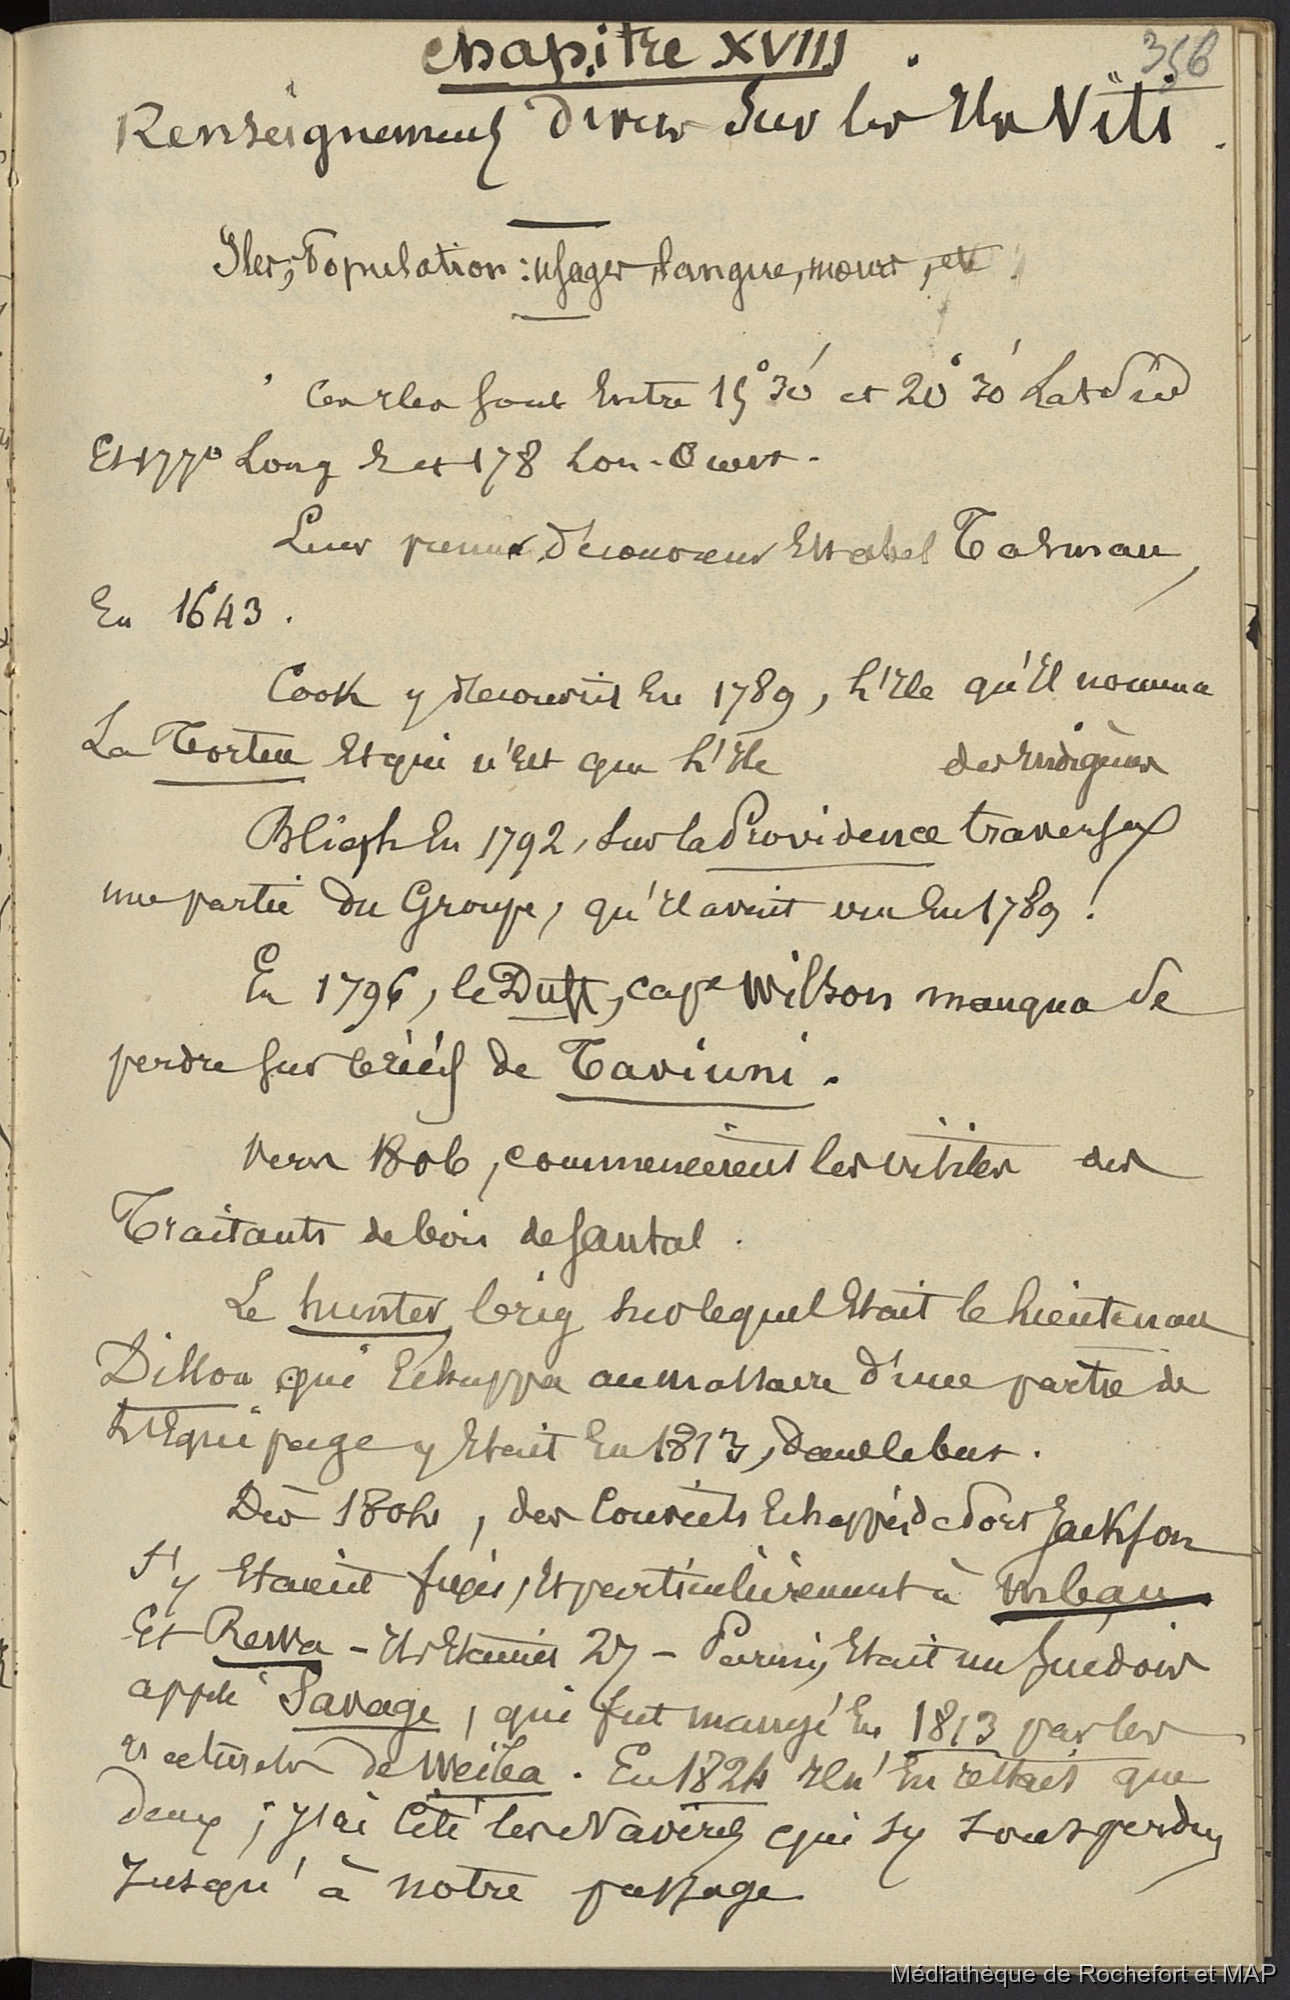 356
Chapitre XVIII.
Renseignements divers sur les Iles Viti.
Iles, Population : usages, langue, mœurs, etc.
Ces Iles sont Entre 15° 30' et 20° 30' Lat Sud
Et 177° Long E et 178 Lon. Ouest.
Leur premier découvreur Est abel Tasman,
En 1643.
Cook y découvrit En 1789, L'Ile qu'Il nomma
La Tortue Et qui n'Est que L'Ile des Indigènes
Bligh En 1792, sur la Providence traversa
une partie du Groupe, qu'Il avait vu En 1789 !
En 1796, le Duff, cape Wilson manqua de
perdre sur les récifs de Taviuni.
vers 1806, commencèrent les visites des
Traitants de bois de santal.
Le hunter, brig sur lequel Etait le Lieutenant
Dillon qui Echappa au massacre d'une partie de
L'Equipage y Etait En 1813, dans le but.
Dès 1804, des Convicts Echappés de Port Jackson
s'y Etaient fixés, Et particulièrement à Mbau
Et Rewa - Ils Etaient 27 - Parmi, Etait un suédois
appelé Savage, qui fut mangé En 1813 par les
naturels de Weilea. En 1824 Il n'En restait que
deux ; J'ai Cité les Navires qui s'y sont perdus
Jusqu'à notre passage
Médiathèque de Rochefort et MAP